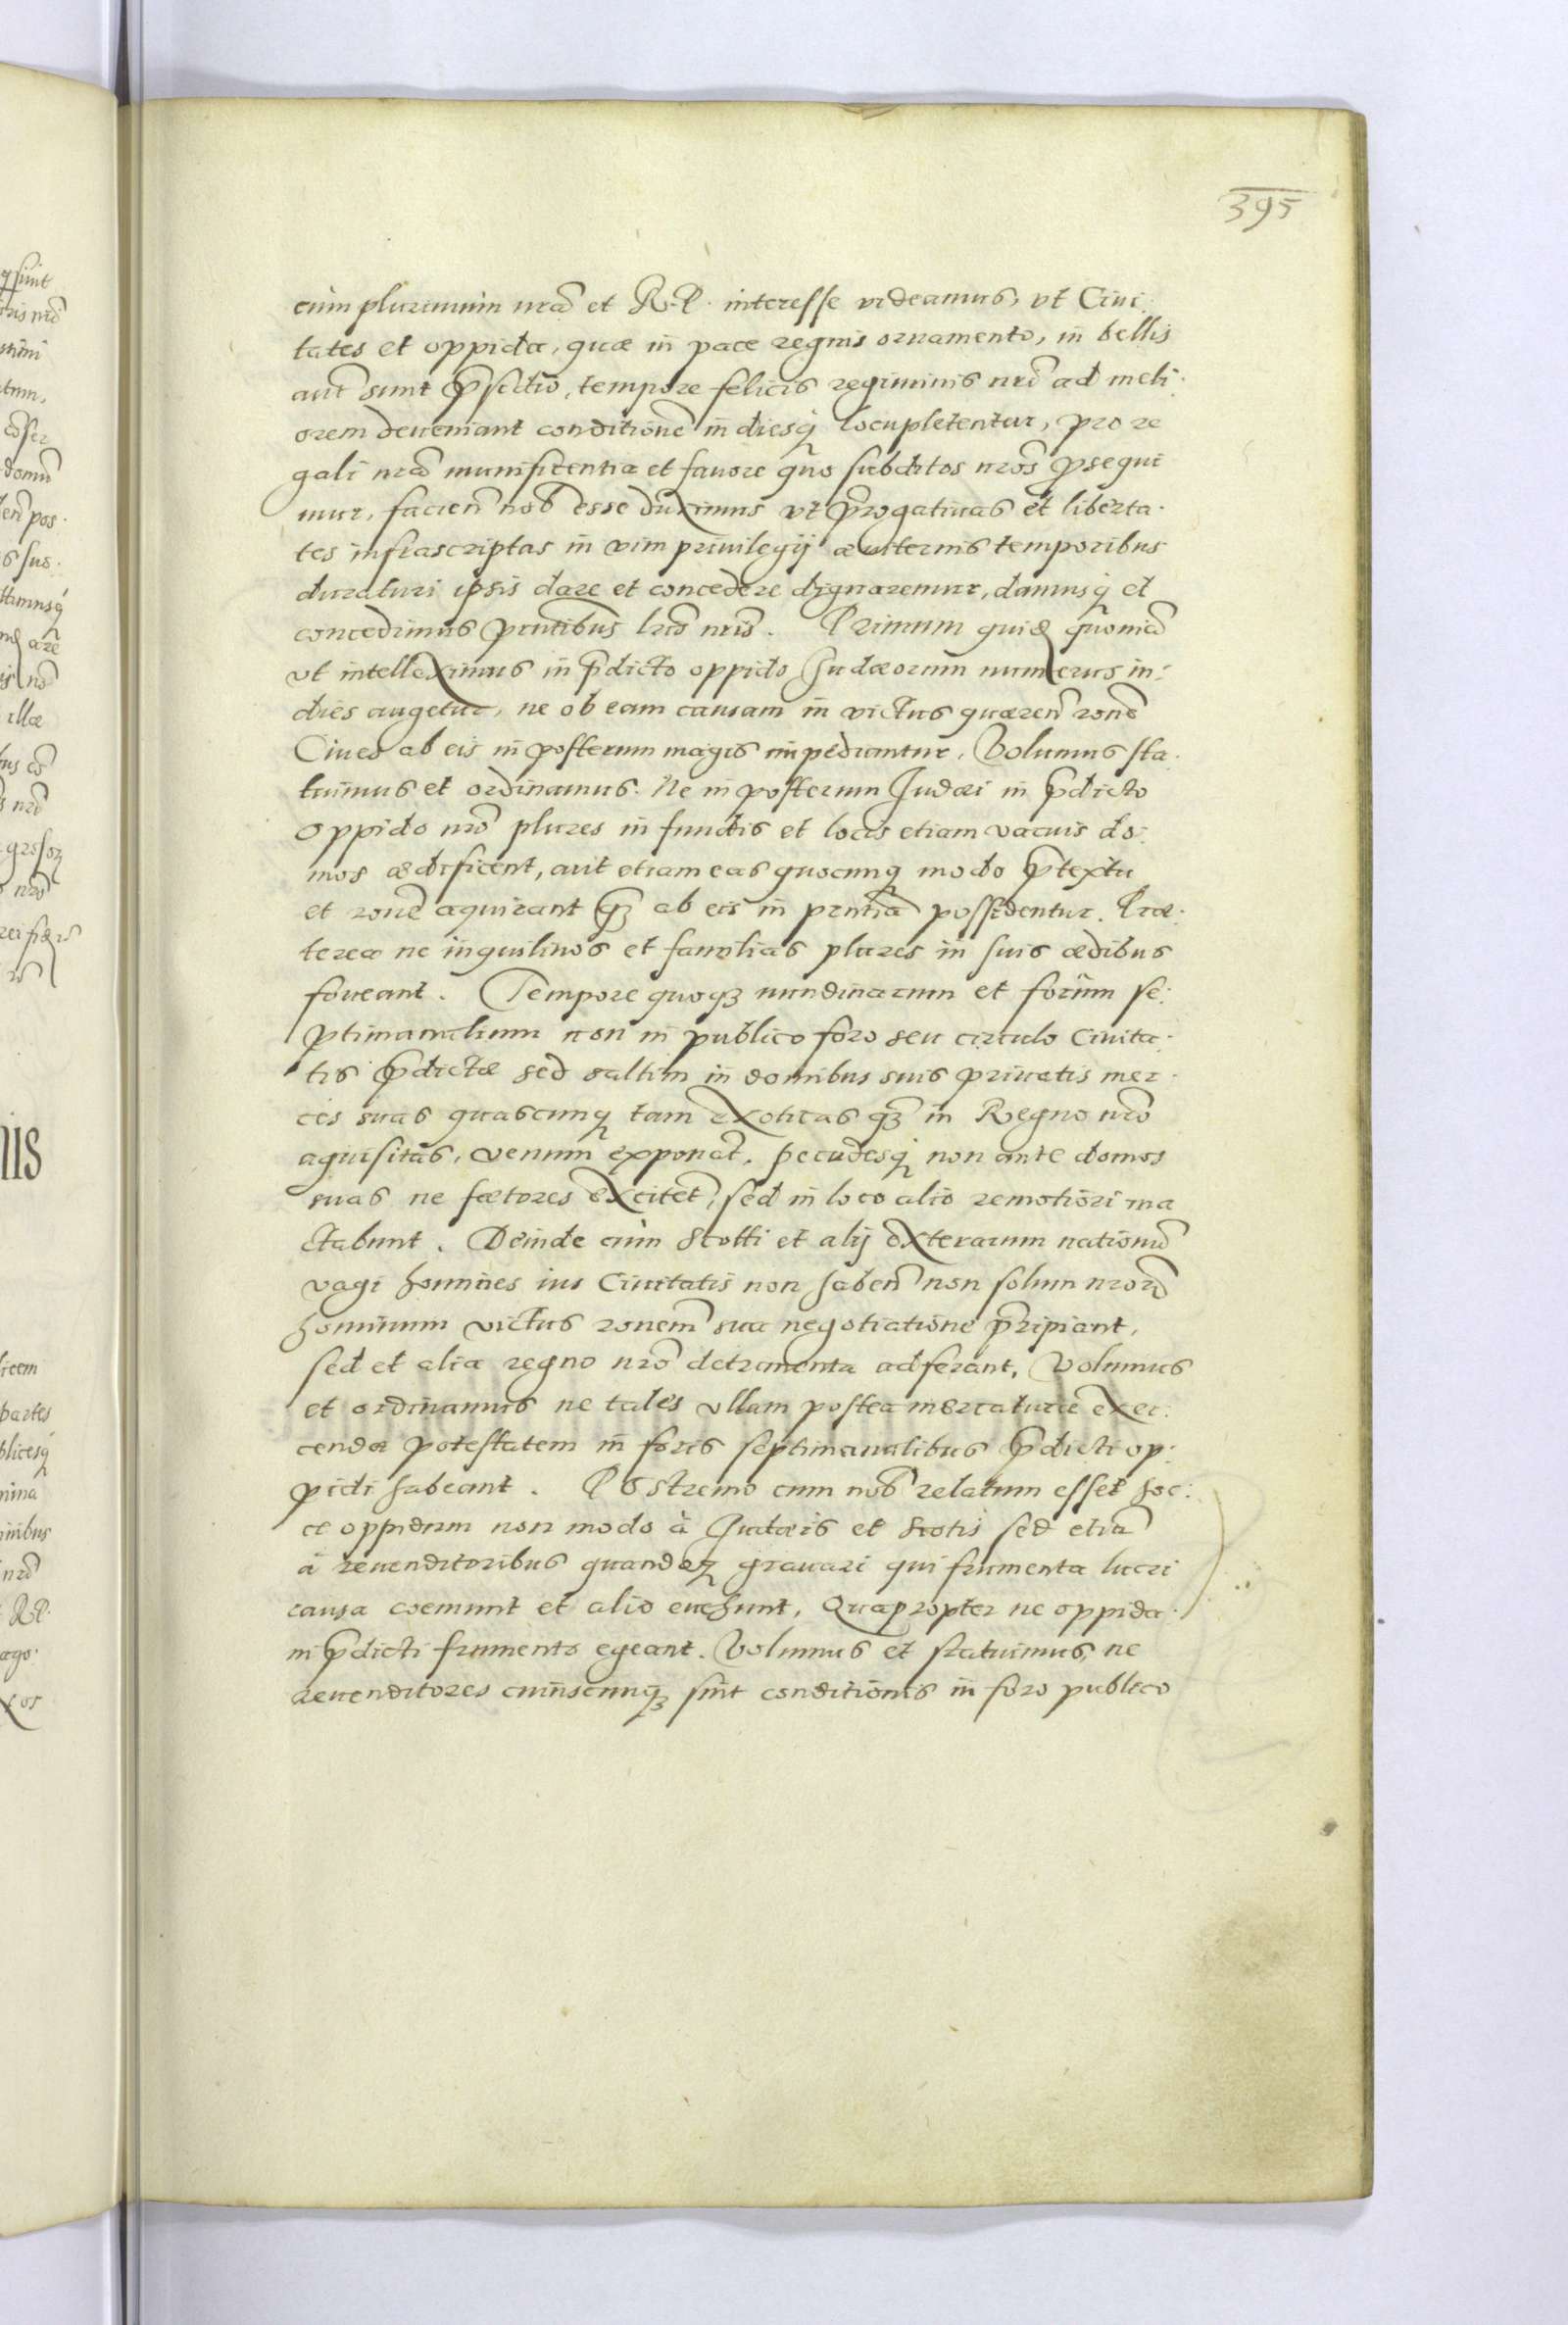 395
cùm plurimùm nr̃ã et R.P. interesse videamus, vt Ciui:
tates et oppida, quæ in pace regnis ornamento, in bellis
aut̃ sunt p̃sidio, tempore felicis regiminis nr̃i ad meli:
orem deueniant conditionẽ in diesq; locupletentur, pro re
gali nr̃a munificentia et fauore quo subditos nr̃os ꝓsequi
mur, facien̄ nob̃ esse duximus vt p̃rogatiuas et liberta:
tes infrascriptas in vim priuilegij æuiternis temporibus
duraturi ipsis dare et concedere dignaremur, damusq; et
concedimus pr̃ntibus lr̃is nr̃is. Primum quid quoniã
vt intelleximus in p̃dicto oppido Judæorum numerus in:
dies augetur, ne ob eam causam in victus quæren̄ ronẽ
Ciues ab eis in posterum magis impediantur, Volumus sta:
tuimus et ordinamus. Ne in posterum Judæi in p̃dicto
oppido nr̃o plures in fundis et locis etiam vacuis do:
mos ædificent, aut etiam eas quocunq; modo p̃textu
et ronẽ aquirant q̃ ab eis in prñtia possidentur. Præ:
terea ne inquilinos et familias plures in suis ædibus
foueant. Tempore quoq; nundinarum et forum se:
ptimanalium non in publico foro seu circulo Ciuita:
tis p̃dictæ sed saltim in domibus suis priuatis mer:
ces suas quascunq; tam exoticas q̃ in Regno nr̃o
aquisitas, venum exponãt. Pecudesq; non ante domos
suas ne fætores excitet̃, sed in loco alio remotiori ma
ctabunt. Deinde cùm Scotti et alij exterarum nationũ
vagi homines ius Ciuitatis non haben̄ non solum nr̃orũ
hominum victus ronem̃ sua negotiatione p̃ripiant,
sed et alia regno nr̃o detrimenta adferant, Volumus
et ordinamus ne tales vllam postea mercaturæ exer:
cendæ potestatem in foris septimanalibus p̃dicti op:
pidi habeant. Postremo cum nob̃ relatum esset hoc:
ce oppidum non modo à Judæis et Scotis sed etiã
à reuenditoribus quandoq; grauari qui frumenta lucri
causa coemunt et alio euehunt, Quapropter ne oppida:
ni p̃dicti frumento egeant. Volumus et statuimus ne
reuenditores cuiuscunq; sint conditionis in foro publico